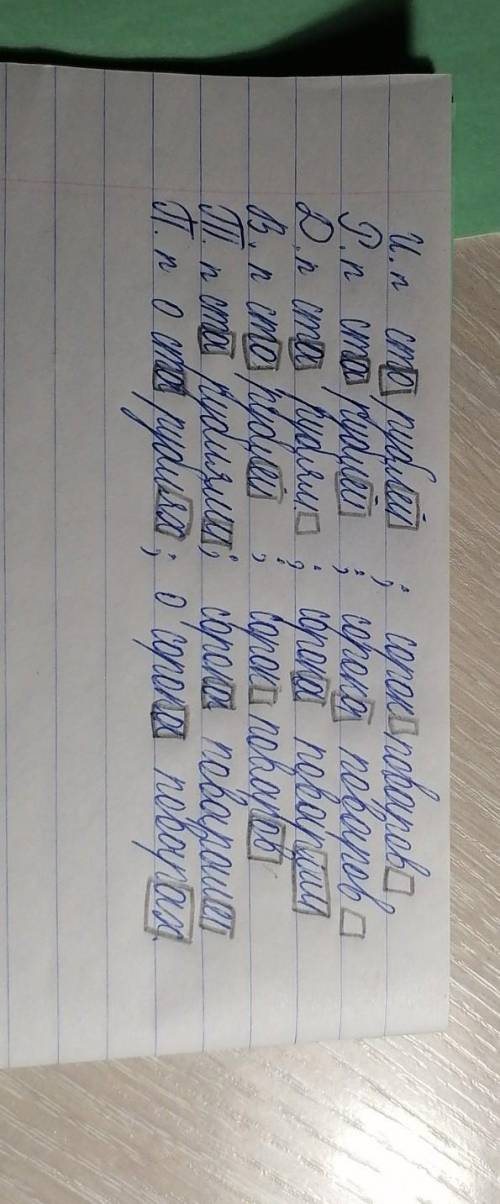 И. п сто рублей ; сорок поваров
Р. п ста рублей ; сорока поваров
Д. п ста рублям ; сорока поварам
В. п сто рублей ; сорок поваров
Т. п ста рублями ; сорока поварами
П. п о ста рублях ; о сорока поварах.